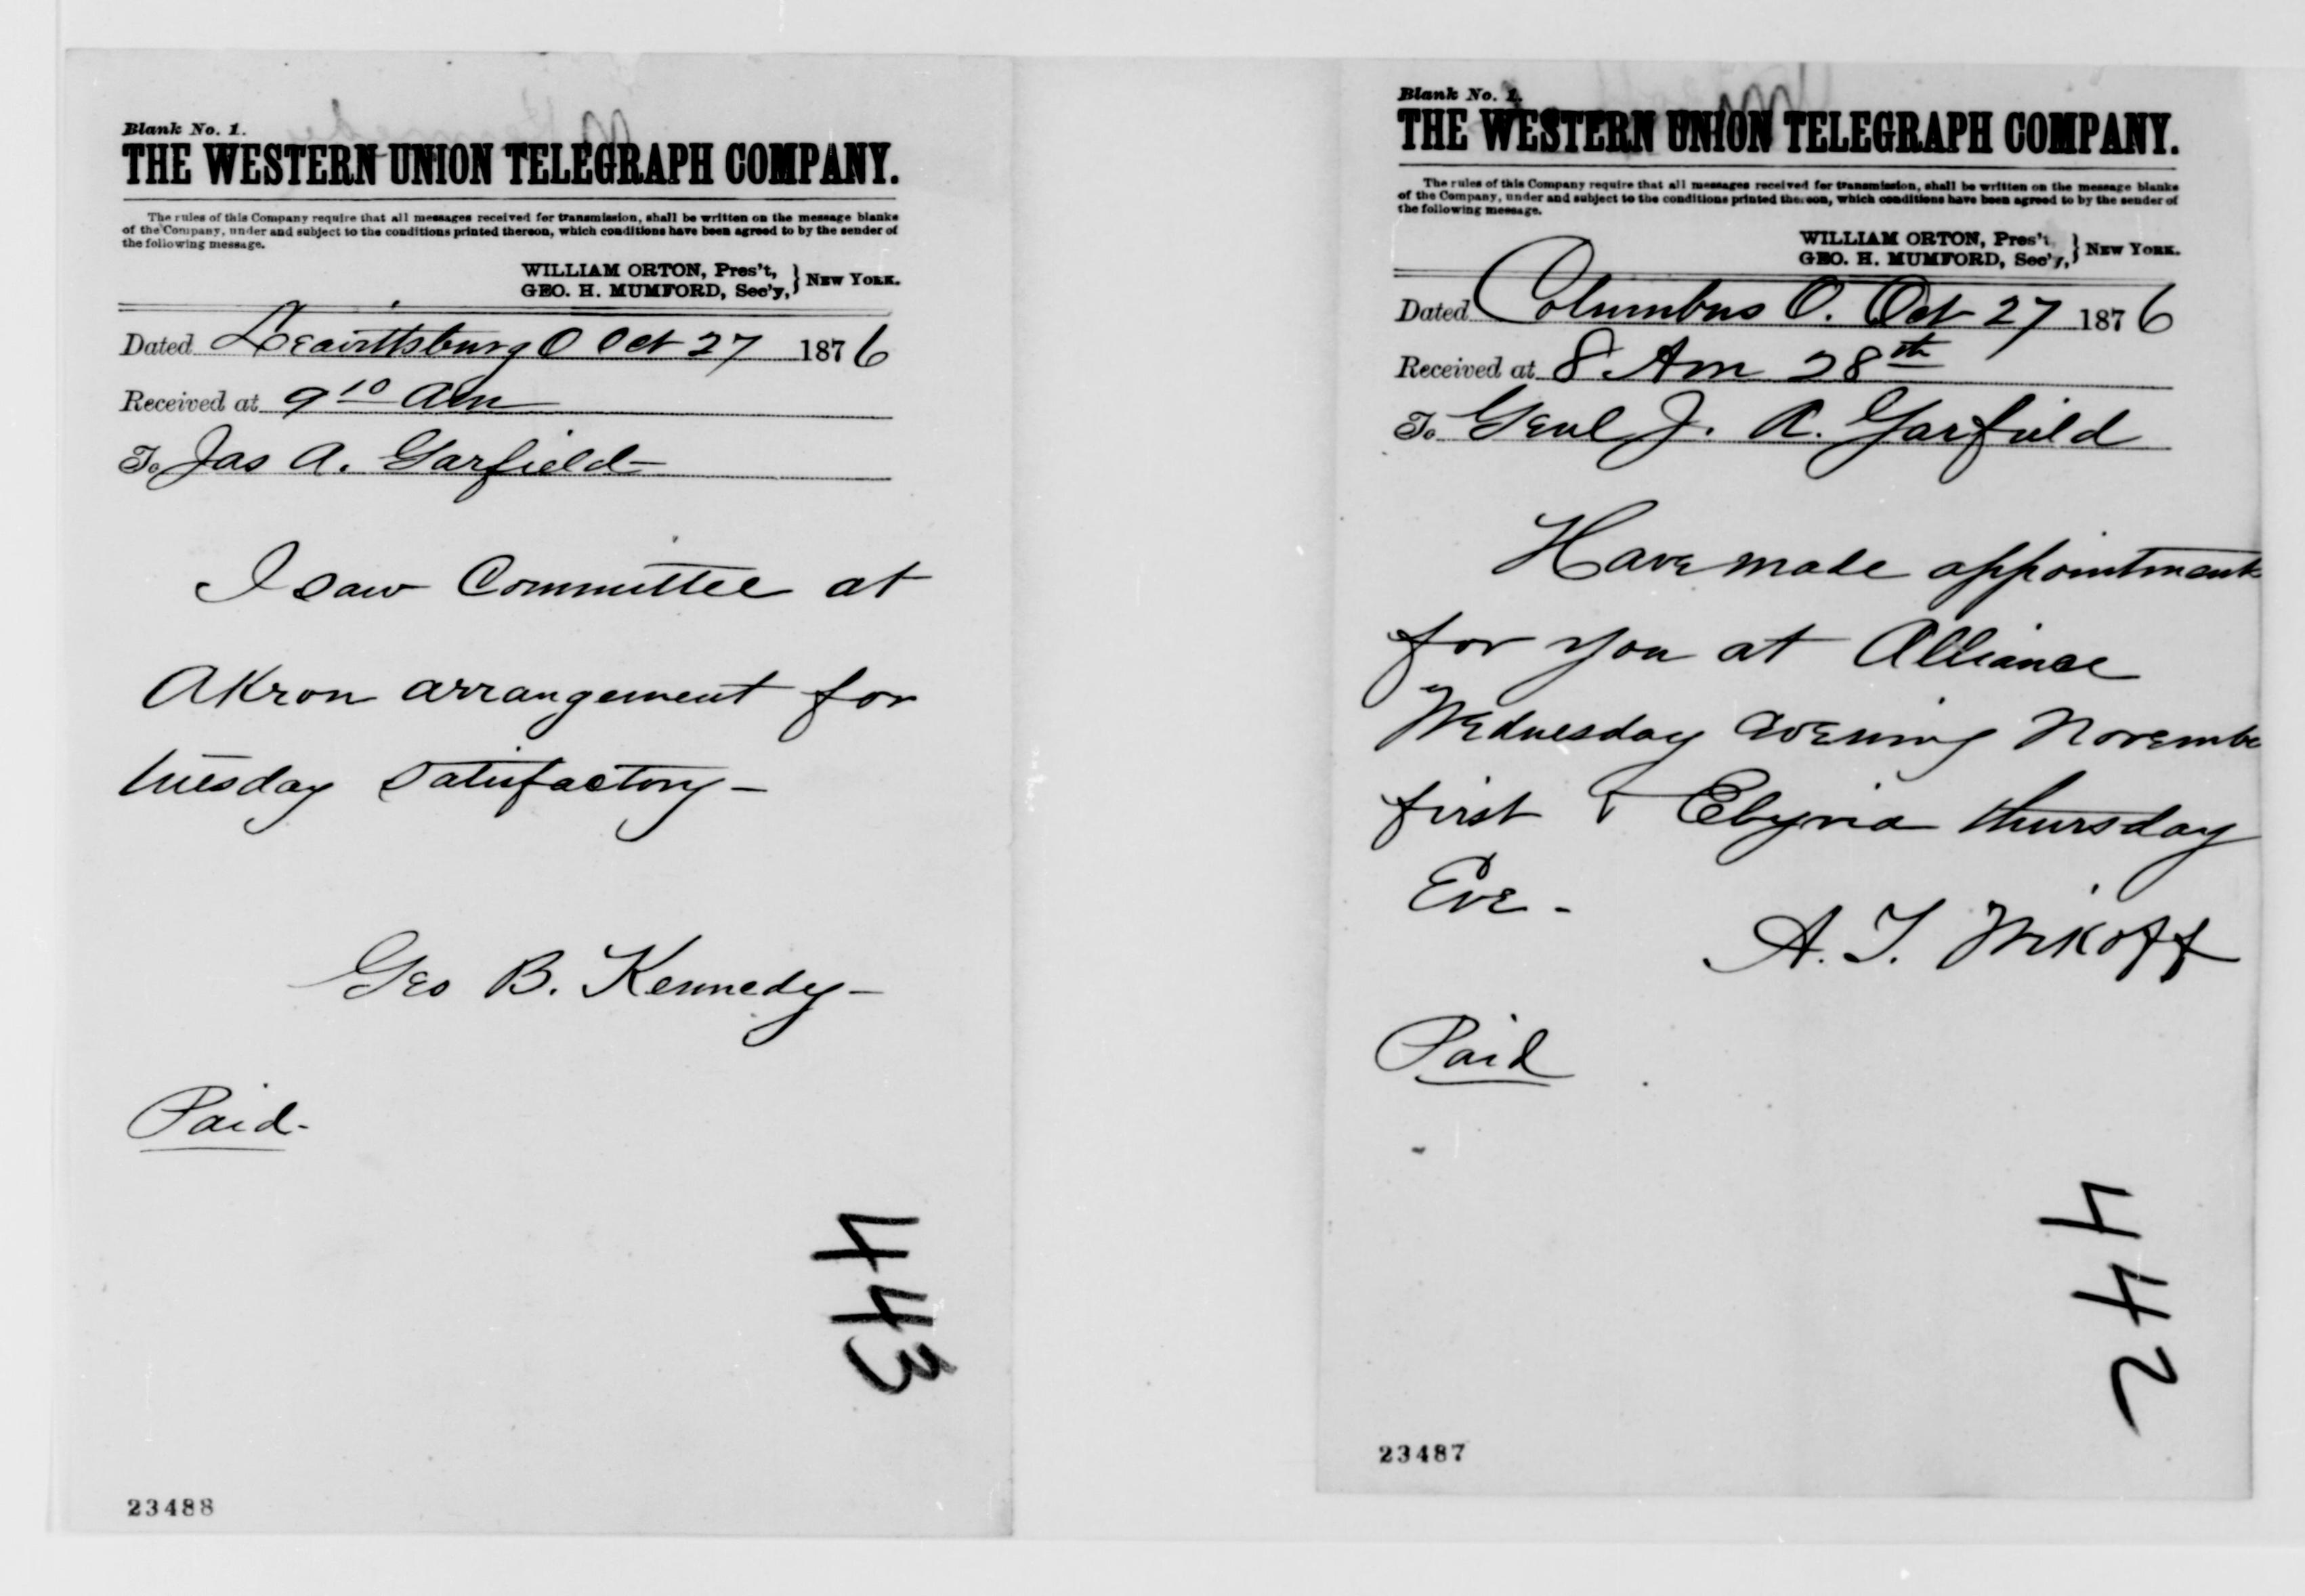 Blank No. 1.
THE WESTERN UNION TELEGRAPH COMPANY.
The rules of this Company require that all messages received for transmission, shall be written on the message blanks
of the Company, under and subject to the conditions printed thereon, which conditions have been agreed to by the sender of
the following message.
WILLIAM ORTON, Pres't,
GEO. H. MUMFORD, Sec'y, } NEW YORK.
Dated Leavittsburg O Oct 27 1876
Received at 9 10 Am
To Jas A. Garfield
I saw Committee at
Akron arrangement for
tuesday satisfactory -
Geo B. Kennedy -
Paid -
443
23488
Blank No. 1.
THE WESTERN UNION TELEGRAPH COMPANY.
The rules of this Company require that all messages received for transmission, shall be written on the message blanks
of the Company, under and subject to the conditions printed thereon, which conditions have been agreed to by the sender of
the following message.
WILLIAM ORTON, Pres't,
GEO. H. MUMFORD, Sec'y, } NEW YORK.
Dated Columbus O. Oct 27 1876
Received at 8 Am 28th
To Genl J. A. Garfield
Have made appointments
for you at Alliance
Wednesday evening Novembe
first & Elyria thursday
Eve -
A. T. Wikoff
Paid
442
23487